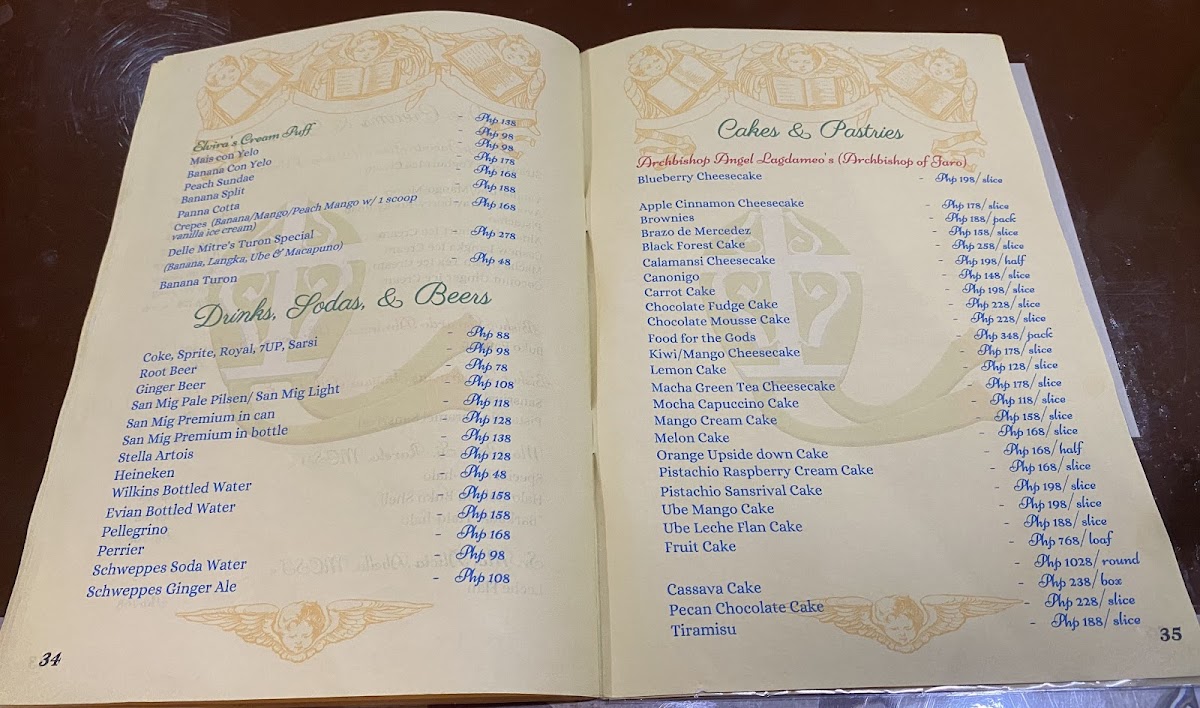 Elvira's Cream Puff - Php 138
Mais con Yelo - Php 98
Banana Con Yelo - Php 98
Peach Sundae - Php 178
Banana Split - Php 168
Panna Cotta - Php 188
Crepes (Banana/Mango/Peach Mango w/ 1 scoop - Php 168
vanilla ice cream)
Delle Mitre's Turon Special - Php 278
(Banana, Langka, Ube & Macapuno)
Banana Turon - Php 48
Drinks, Sodas, & Beers
Coke, Sprite, Royal, 7UP, Sarsi - Php 88
Root Beer - Php 98
Ginger Beer - Php 78
San Mig Pale Pilsen/ San Mig Light - Php 108
San Mig Premium in can - Php 118
San Mig Premium in bottle - Php 128
Stella Artois - Php 138
Heineken - Php 128
Wilkins Bottled Water - Php 48
Evian Bottled Water - Php 158
Pellegrino - Php 158
Perrier - Php 168
Schweppes Soda Water - Php 98
Schweppes Ginger Ale - Php 108
34
Cakes & Pastries
Archbishop Angel Lagdameo's (Archbishop of Jaro)
Blueberry Cheesecake - Php 198/slice
Apple Cinnamon Cheesecake - Php 178/slice
Brownies - Php 188/pack
Brazo de Mercedez - Php 158/slice
Black Forest Cake - Php 258/slice
Calamansi Cheesecake - Php 198/half
Canonigo - Php 148/slice
Carrot Cake - Php 198/slice
Chocolate Fudge Cake - Php 228/slice
Chocolate Mousse Cake - Php 228/slice
Food for the Gods - Php 348/pack
Kiwi/Mango Cheesecake - Php 178/slice
Lemon Cake - Php 128/slice
Macha Green Tea Cheesecake - Php 178/slice
Mocha Capuccino Cake - Php 118/slice
Mango Cream Cake - Php 158/slice
Melon Cake - Php 168/slice
Orange Upside down Cake - Php 168/half
Pistachio Raspberry Cream Cake - Php 168/slice
Pistachio Sansrival Cake - Php 198/slice
Ube Mango Cake - Php 198/slice
Ube Leche Flan Cake - Php 188/slice
Fruit Cake - Php 768/loaf
- Php 1028/round
Cassava Cake - Php 238/box
Pecan Chocolate Cake - Php 228/slice
Tiramisu - Php 188/slice
35